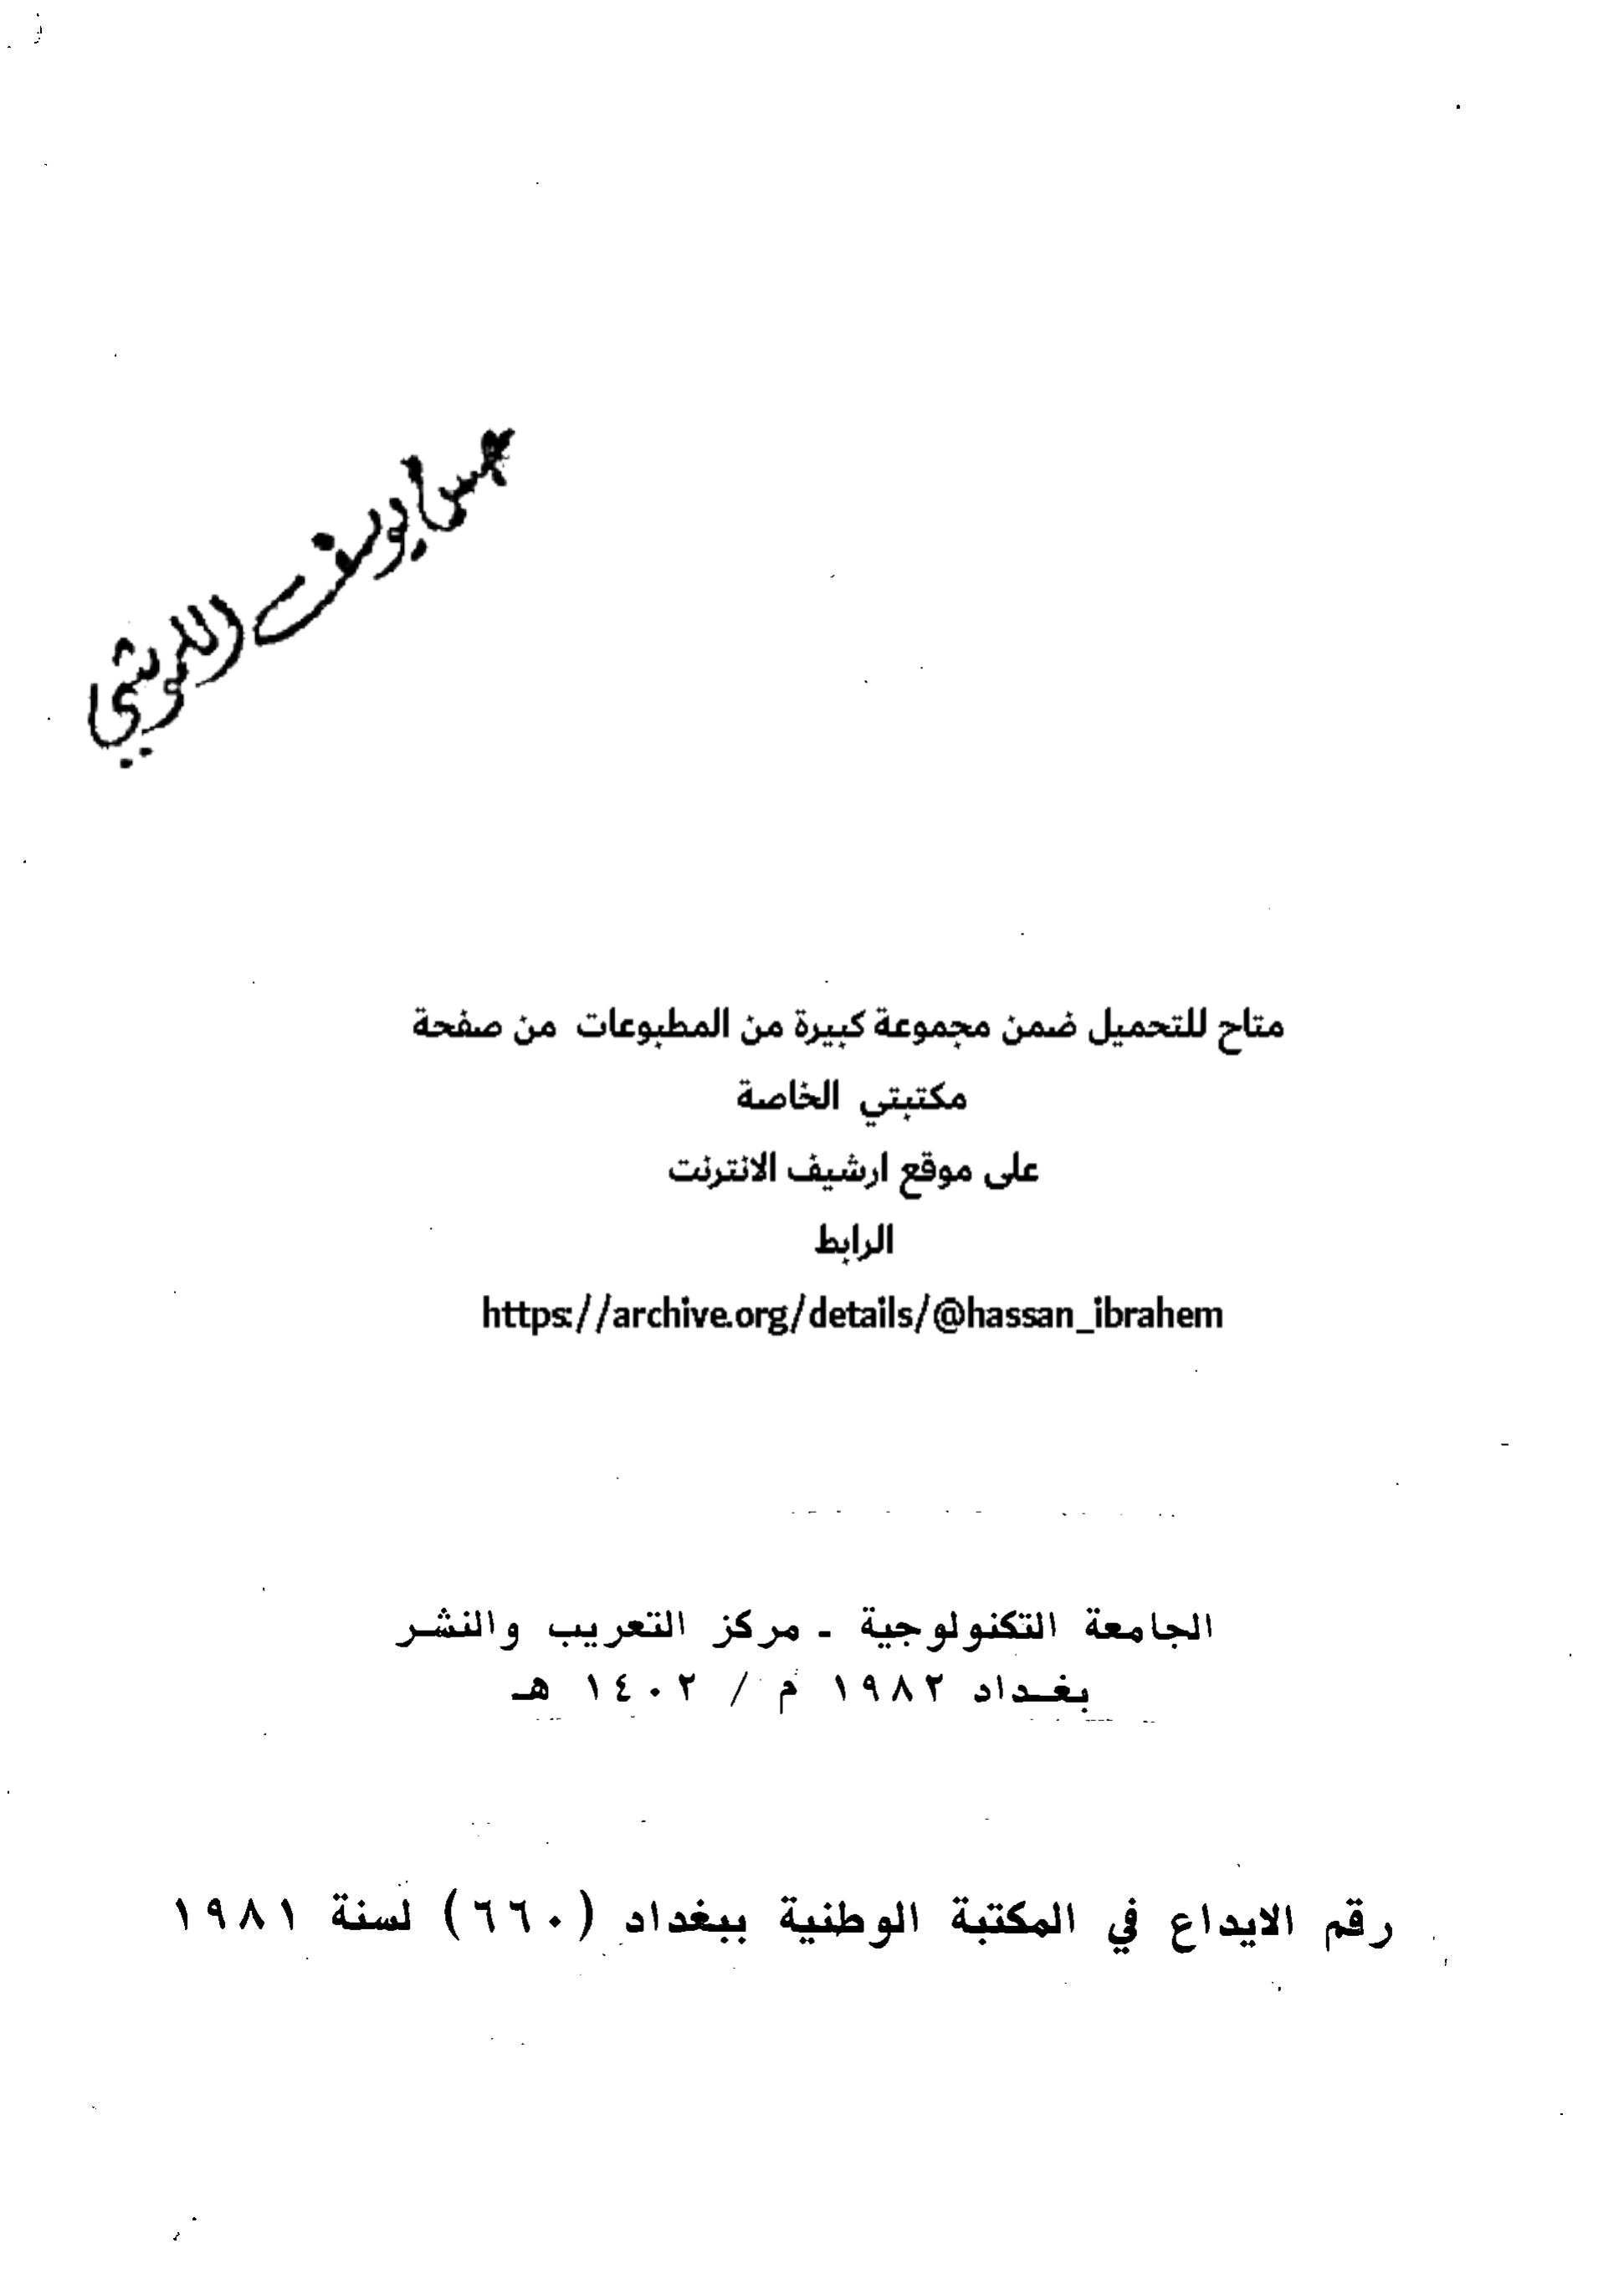 متاح للتحميل ضمن مجموعة كبيرة من المطبوعات من صفحة
مكتبتي الخاصة
على موقع ارشيف الانترنت
الرابط
https://archive.org/details/@hassan_ibrahem
الجامعة التكنولوجية - مركز التعريب والنشر
بغداد ١٩٨٢ م / ١٤٠٢ هـ
رقم الايداع في المكتبة الوطنية ببغداد (٦٦٠) لسنة ١٩٨١